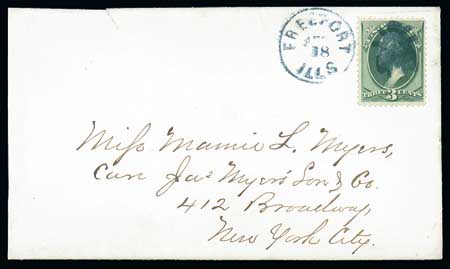 FREEPORT
18
ILLS
THREE 3 CENTS
Miss Mamie L. Myers,
Care Jas Myers' Son & Co.
412 Broadway,
New York City.